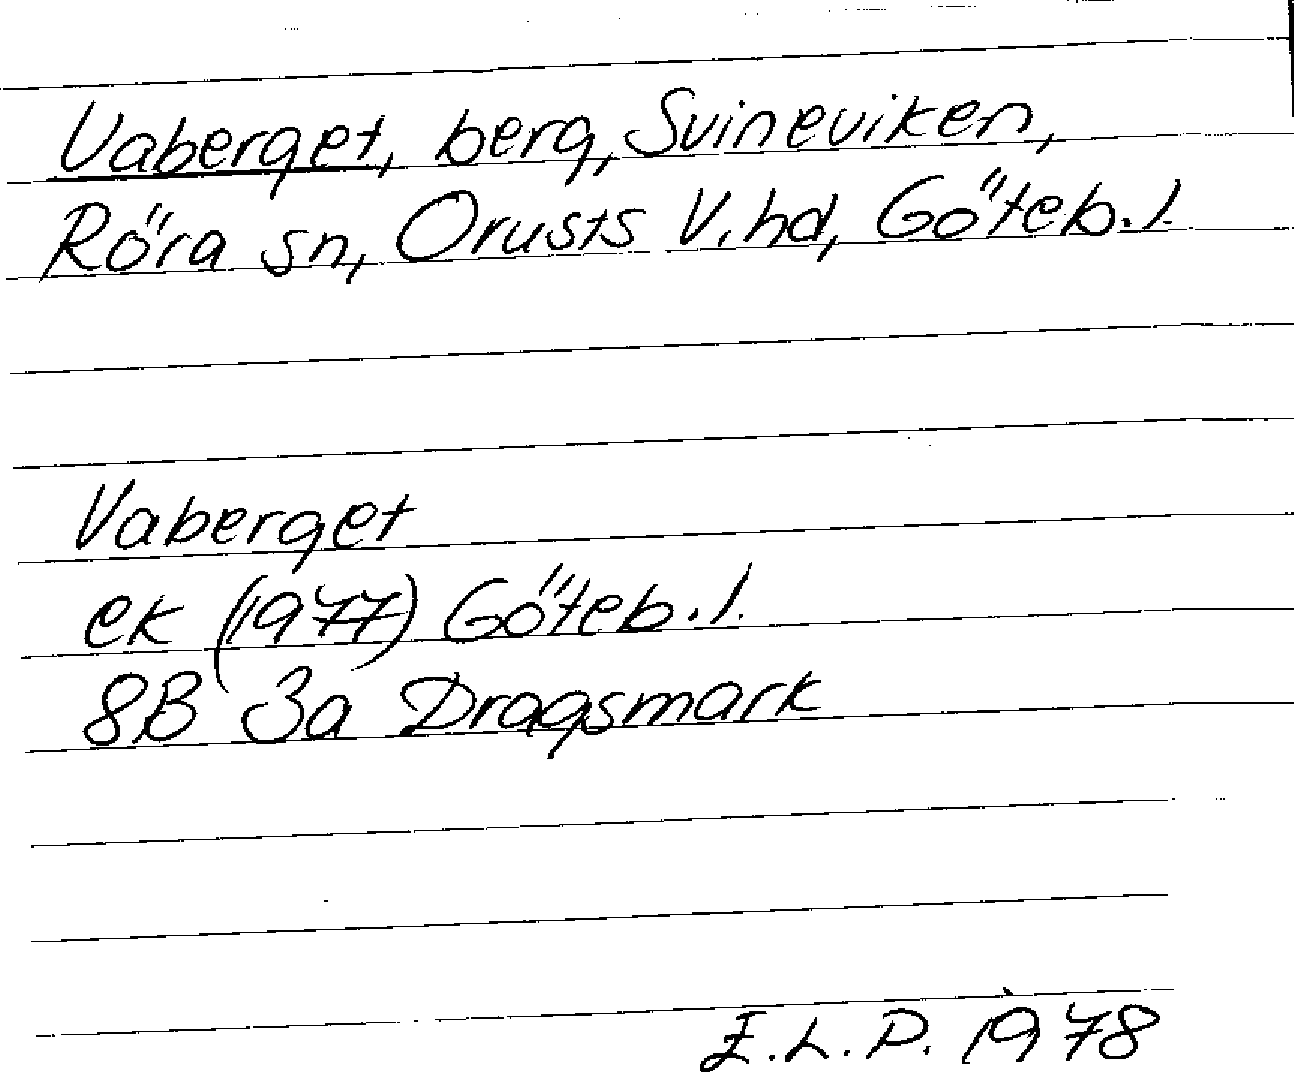 Vaberget, berg, Svineviken,
Röra sn, Orusts V. hd, Göteb. l.
Vaberget
ek (1977) Göteb. l.
8B 3a Dragsmark
E.L.P. 1978